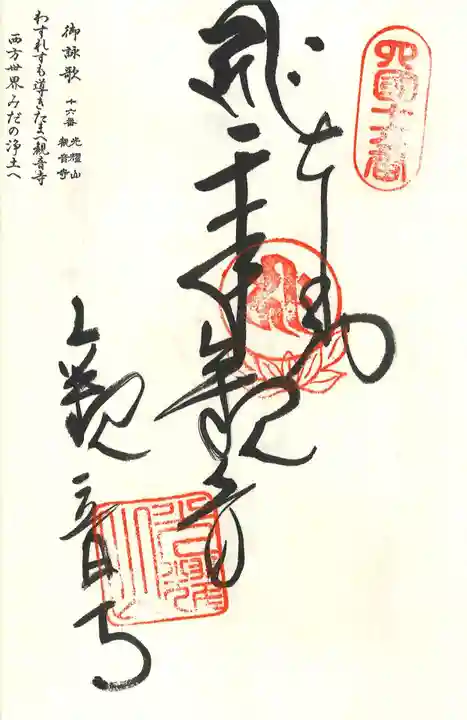 四國十六番
奉納
千手観音
観音寺
御詠歌 十六番 光耀山 観音寺
わすれずも導きたまへ観音寺
西方世界みだの浄土へ